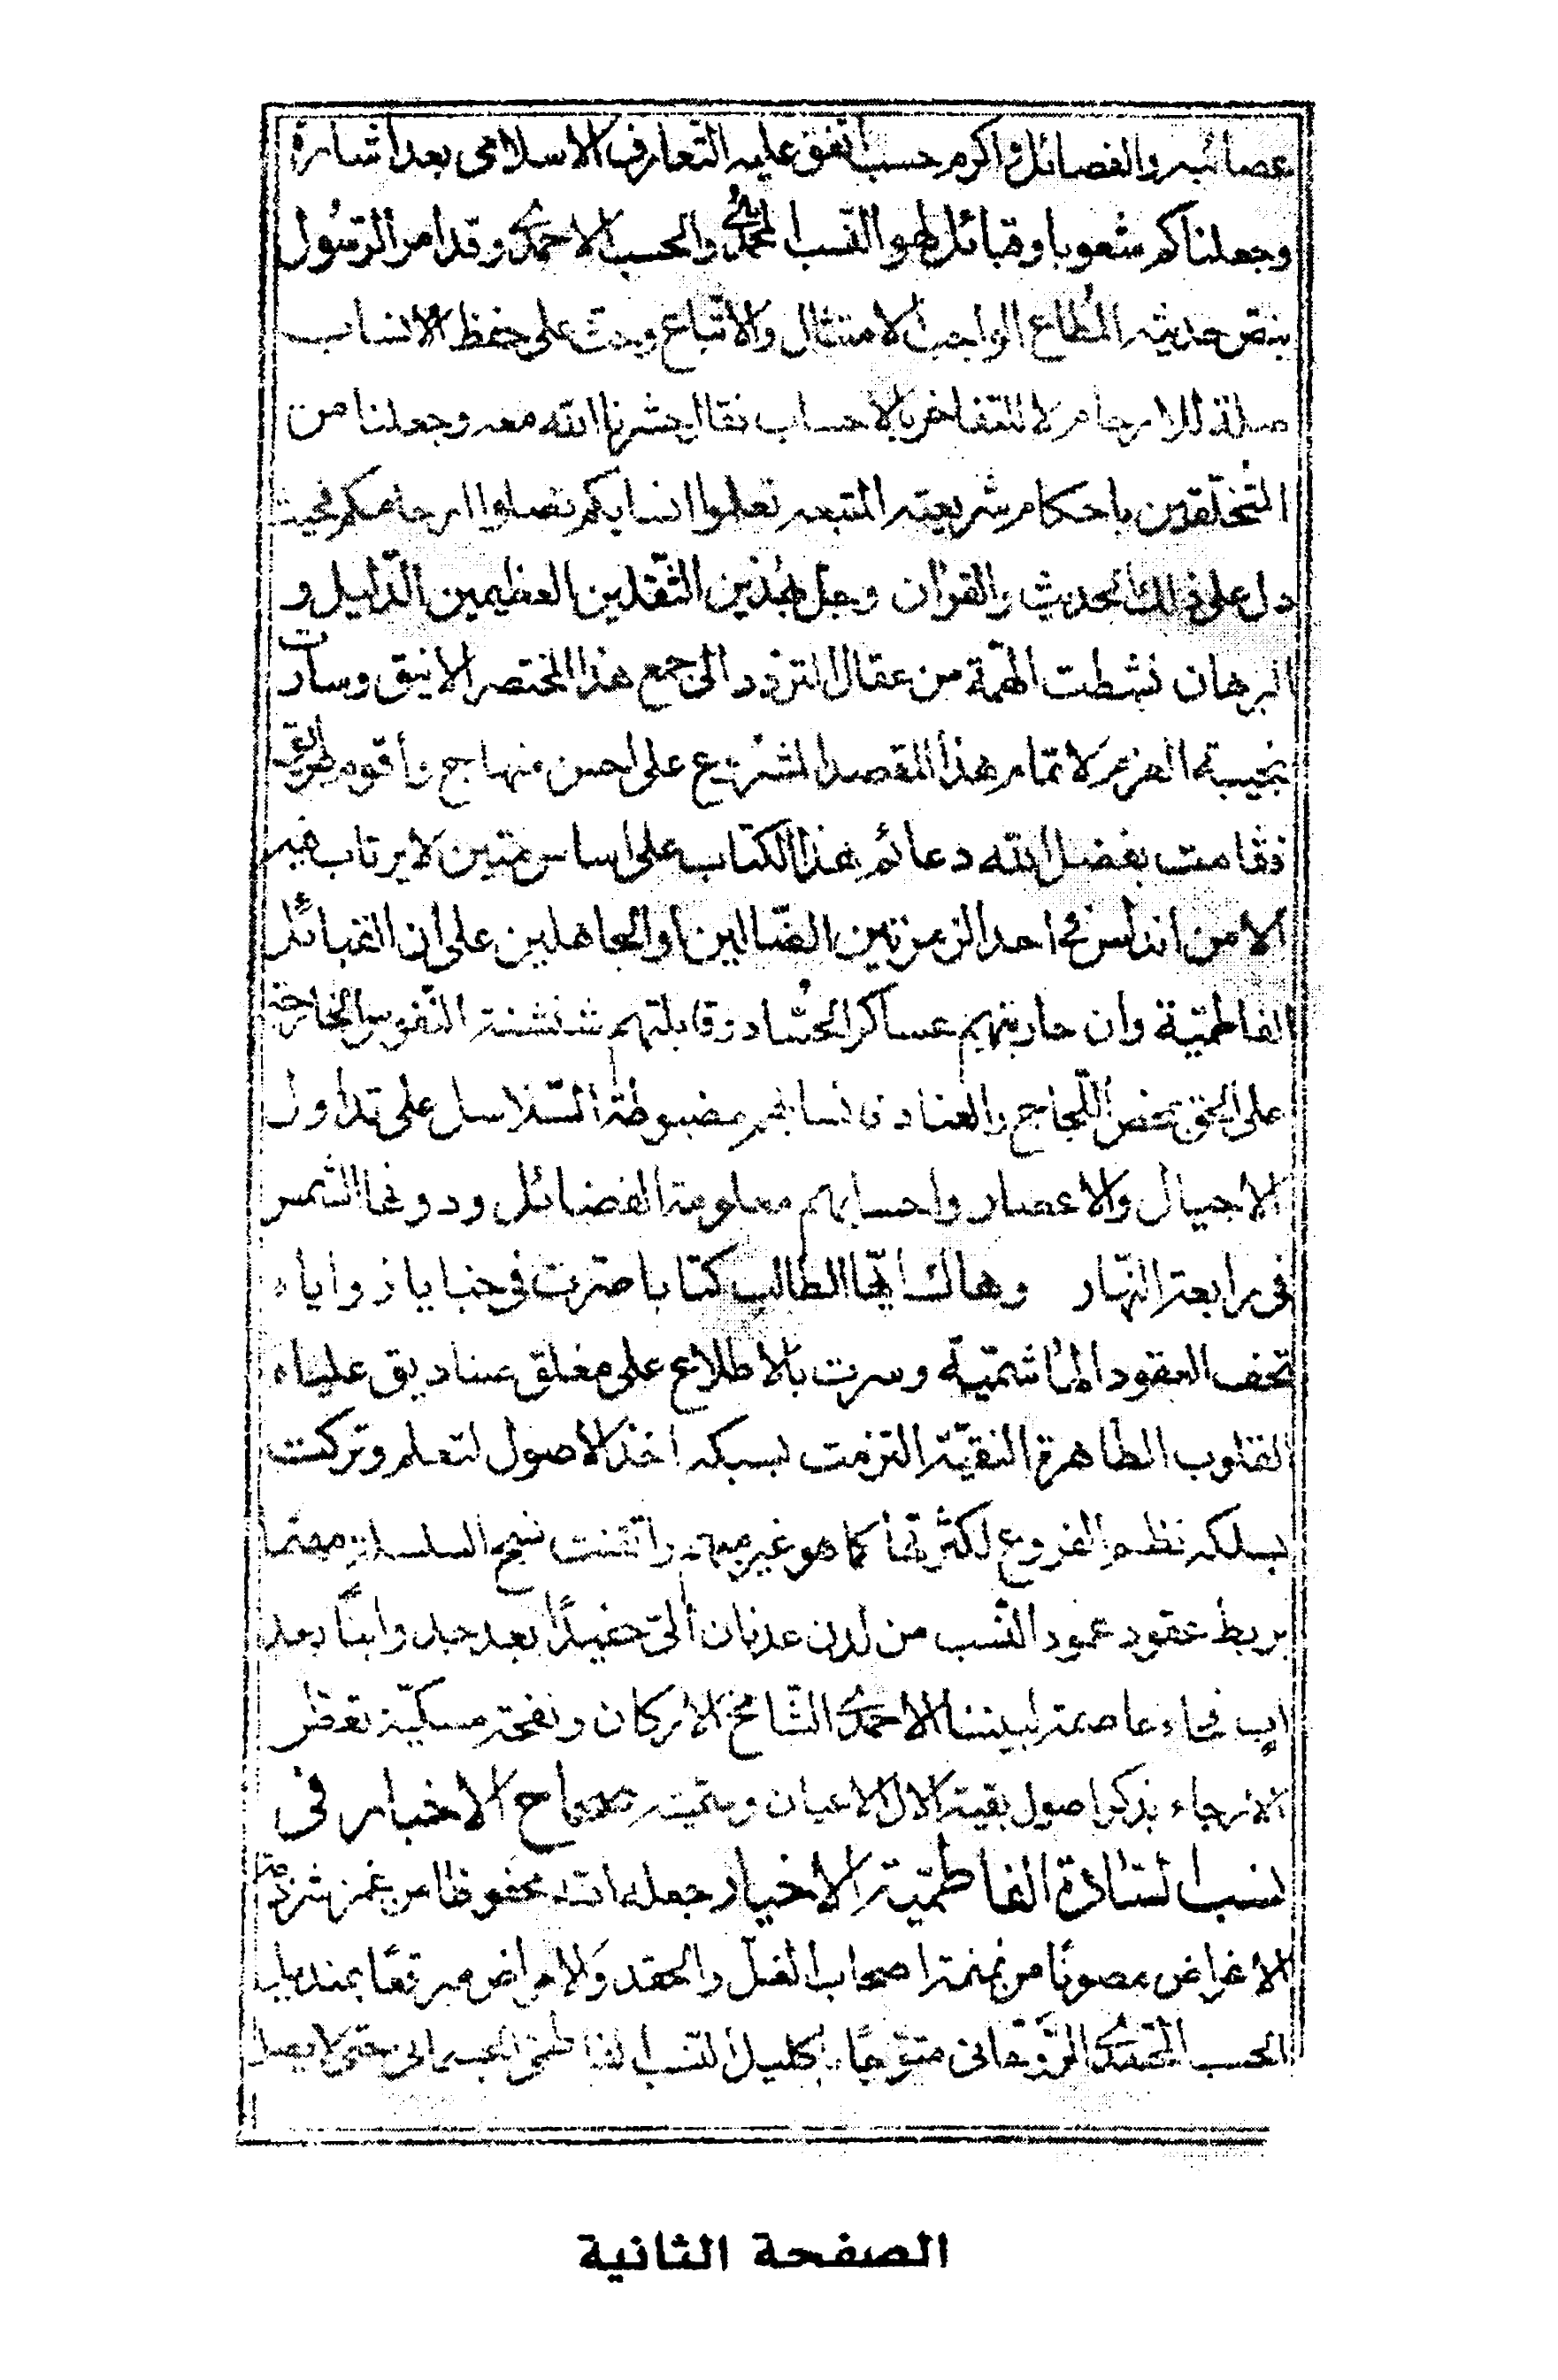 عصائبه والفصائل واكرم حسب اتفق عليه التعارف الاسلامى بعد اشارة
وجعلناكم شعوبا وقبائل لهو النسب المحمدىّ والحسب الاحمدىّ وقد امر الرّسول
بنص حديثه المطاع الواجب الامتثال والاتّباع وحث على حفظ الانساب
صلة للارحام لا للتفاخر بالاحساب فقال حشرنا الله معه وجعلنا من
المتخلّقين باحكام شريعته المتبعه تعلموا انسابكم تصلوا ارحامكم فحيث
دل على ذلك الحديث والقرآن وجل بهذين الثّقلين العظيمين الدّليل و
البرهان نشطت الهمّة من عقال التردد الى جمع هذا المختصر الانيق وسارت
نجيبة العزم لاتمام هذا المقصد الشريع على احسن منهاج وأقوم طريق
فقامت بفضل الله دعائم هذا الكتاب على اساس متين لا يرتاب فيه
الا من اندلس فى احد الزمرتين الضّالين او الجاهلين على ان القبائل
الفاطميّة وان حاربتهم عساكر الحسّاد وقابلتهم شنشنة النّفوس الخارجة
على الحق بمحض اللّجاج والعناد فانسابهم مضبوطة السّلاسل على تداول
الاجيال والاعصار واحسابهم معلومة الفضائل ودونها الشمس
فى رابعة النّهار وهاك ايّها الطالب كتابا صرت فى خبايا زواياه
تحف العقود الهاشميّة وسرت بالاطلاع على مغلق صناديق علياه
القلوب الطاهرة النقيّة التزمت بسبكه اخذ الاصول لتعلم وتركت
بسلكه نظم الفروع لكثرتها كما هو غير مبهم واتقنت نسج السلسلة مهتما
بربط عقود عمود النّسب من لدن عدنان الى حفيدًا بعد جد وابنًا بعد
اب فجاء عاصمة لبيتنا الاحمدىّ الشّامخ الاركان ونفحة مسكيّة تعطر
الارجاء بذكر اصول بقية الال الاعيان وسمّيته صحاح الاخبار فى
نسب السّادة الفاطميّة الاخيار جعله الله محفوظا من غمز شرذمة
الاغراض مصونًا من نمنمة اصحاب الغل والحقد والامراض مرتفعًا بمنديل
الحسب المحمّدىّ الرّوحانى متوّجًا باكليل النسب الفاطمى حتى لا يصل
الصفحة الثانية